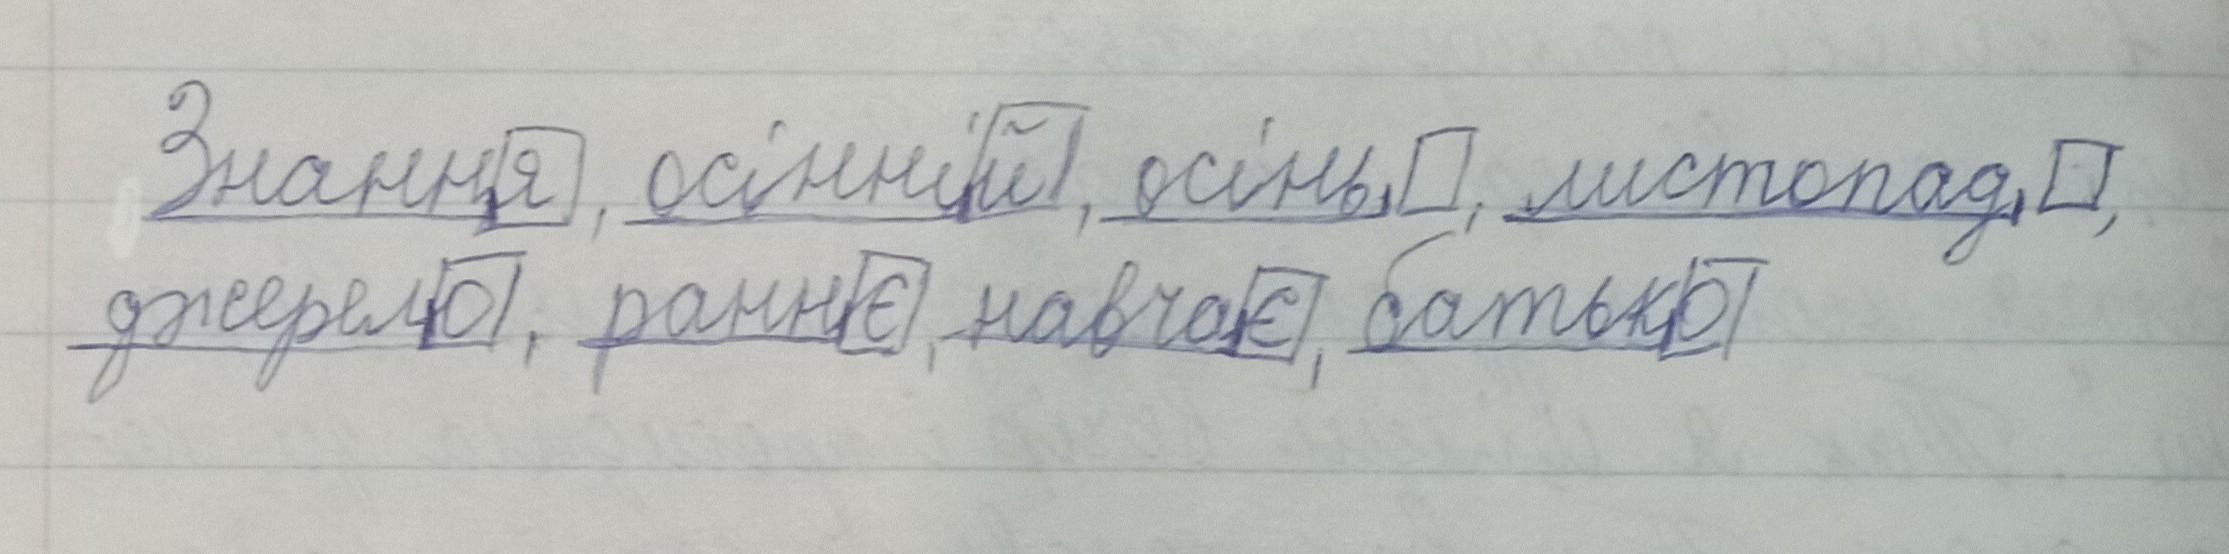 Знання, осінній, осінь, листопад,
джерело, раннє, навчає, батько